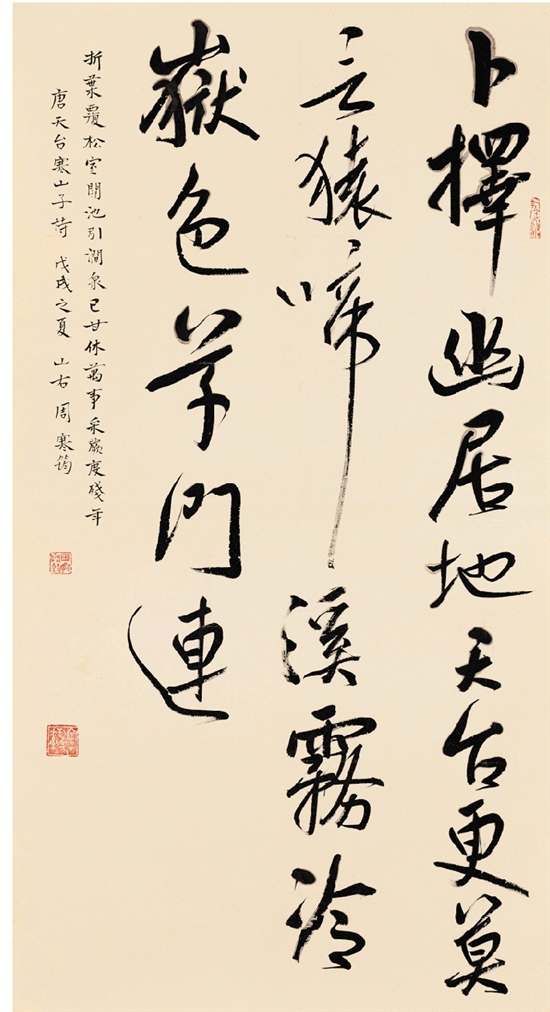 卜擇幽居地天台更莫
言猿啼溪霧冷
嶽色草門連
折葉覆松室開池引澗泉已甘休萬事采蕨度殘年
唐天台寒山子詩 戊戌之夏 山右 周寒筠